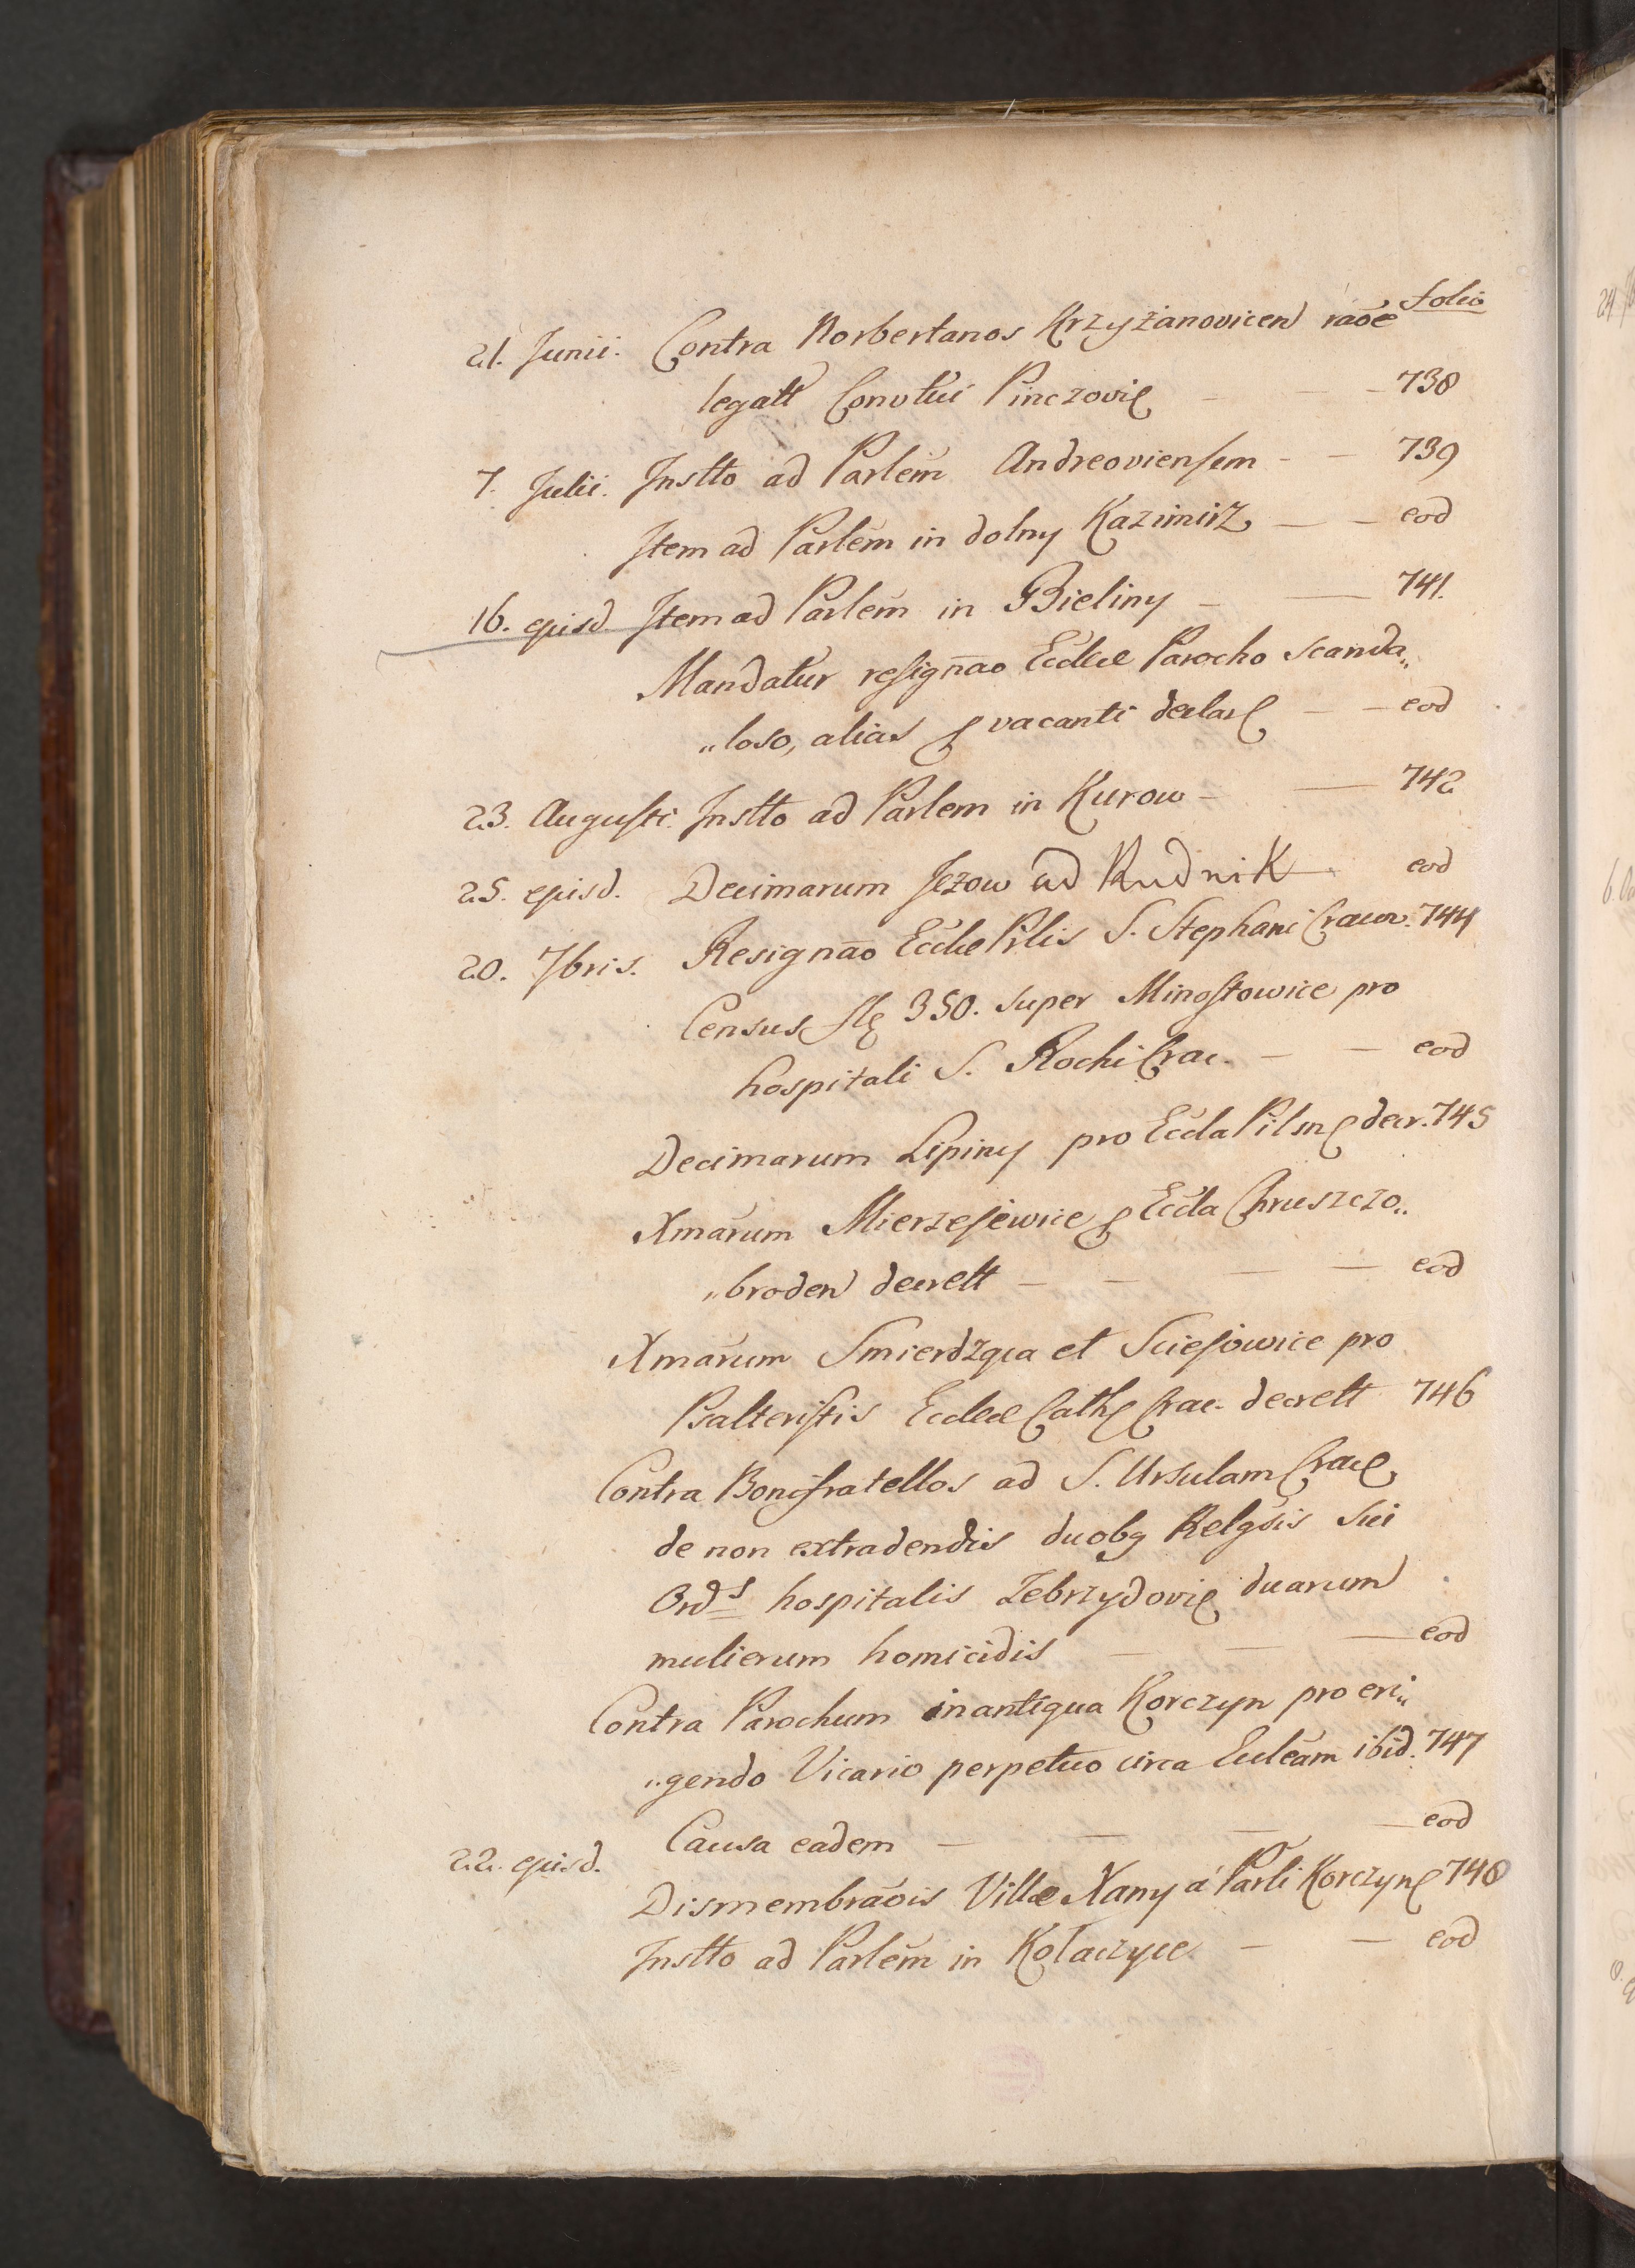 folio
21. Junii. Contra Norbertanos Krzyżanovicen raõe
legatt Convtui Pinczovię — — 738
7. Julii. Instto ad Parlem Andreoviensem - — 739
Item ad Parlem in dolny Kazimirz — — eod
16. ejusd. Item ad Parlem in Bieliny — — 741.
Mandatur resignao Ecclae Parocho scanda„
„loso, alias p vacanti declar — — eod
23. Augusti. Instto ad Parlem in Kurow — — 742
25. ejusd. Decimarum Jezow ad Rudnik — eod
20. 7bris. Resignao Ecclae Plis S. Stephani Cracov. 744
Census fl 350. super Minostowice pro
hospitali S. Rochi Crac. — — eod
Decimarum Lipiny pro Eccla Pilsn decr. 745
Xmarum Mierzejewice p Eccla Chruszczo„
„broden decrett — — — — eod
Xmarum Smierdząca et Sciejowice pro
Psalteristis Ecclae Cath Crac. decrett 746
Contra Bonifratellos ad S. Ursulam Crac
de non extradendis duobg Relgsis sui
Ords hospitalis Zebrzydovię duarum
mulierum homicidis — — — eod
Contra Parochum in antiqua Korczyn pro eri„
„gendo Vicario perpetuo circa Eccleam ibid. 747
Causa eadem — — — — eod
22. ejusd. Dismembraois Villae Xany á Parli Korczyn 748
Instto ad Parlem in Kołaczyce — — eod